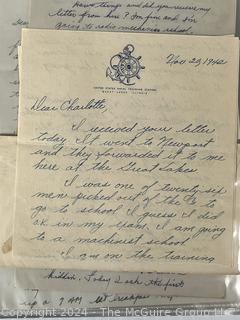 news things and did you receive my
letter from here? I'm fine and I'm
going to radio mechanics school.
UNITED STATES NAVAL TRAINING STATION
GREAT LAKES, ILLINOIS
Nov 23, 1942
Dear Charlotte,
I received your letter
today. It went to Newport
and they forwarded it to me
here at the Great Lakes
I was one of twenty-six
men picked out of the Co. to
go to school I guess I did
ok in my exam. I am going
to a machinest school
I am on the training
hidden. Today I ask the first
up @
©2024 - The McGuire Group, Inc.